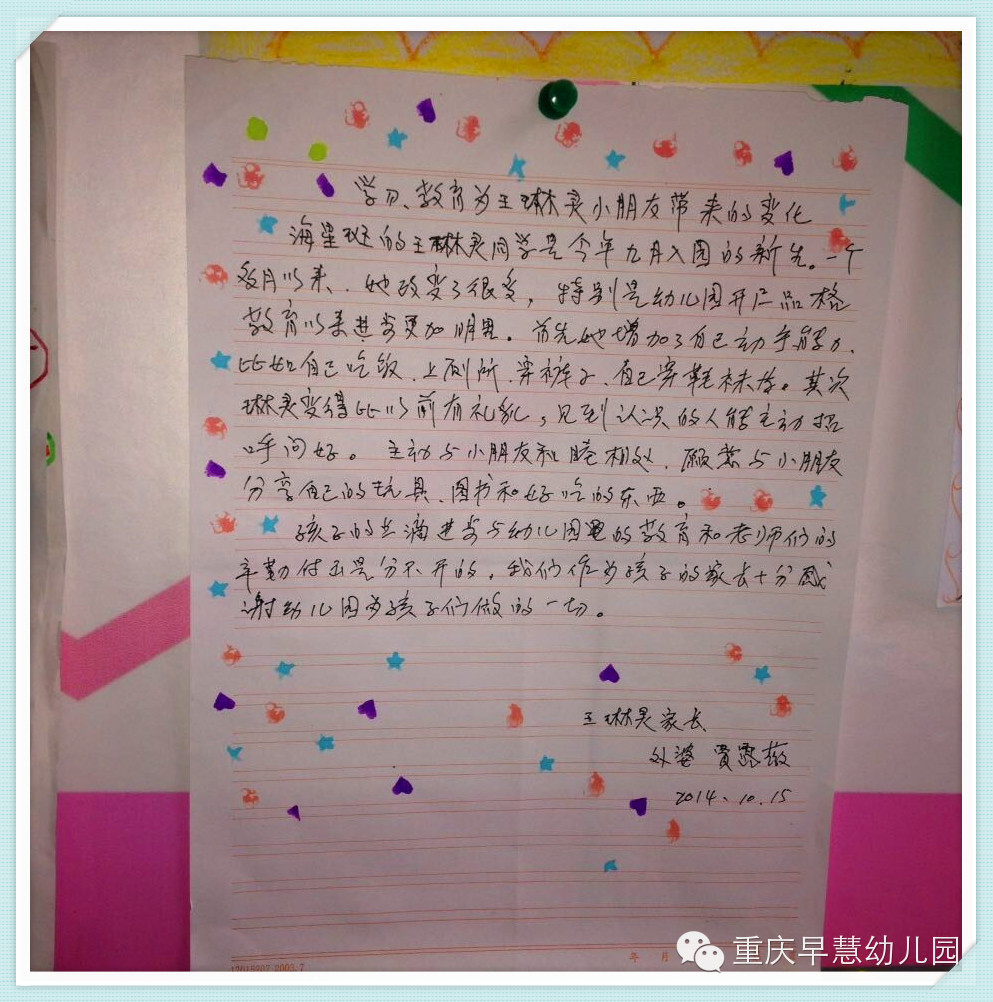 学习、教育为王琳灵小朋友带来的变化
海星班的王琳灵同学是今年九月入园的新生。一个
多月以来、她改变了很多，特别是幼儿园开广品格
教育以来进步更加明显。首先她增加了自己动手能力、
比如自己吃饭、上厕所、穿裤子、自己穿鞋袜等。其次
琳灵变得比以前有礼貌，见到认识的人能主动招
呼问好。主动与小朋友和睦相处、愿意与小朋友
分享自己的玩具、图书和好吃的东西。
孩子的点滴进步与幼儿园里的教育和老师们的
辛勤付出是分不开的，我们作为孩子的家长十分感
谢幼儿园为孩子们做的一切。
王琳灵家长
外婆 贾
2014、10.15
年 月
重庆早慧幼儿园